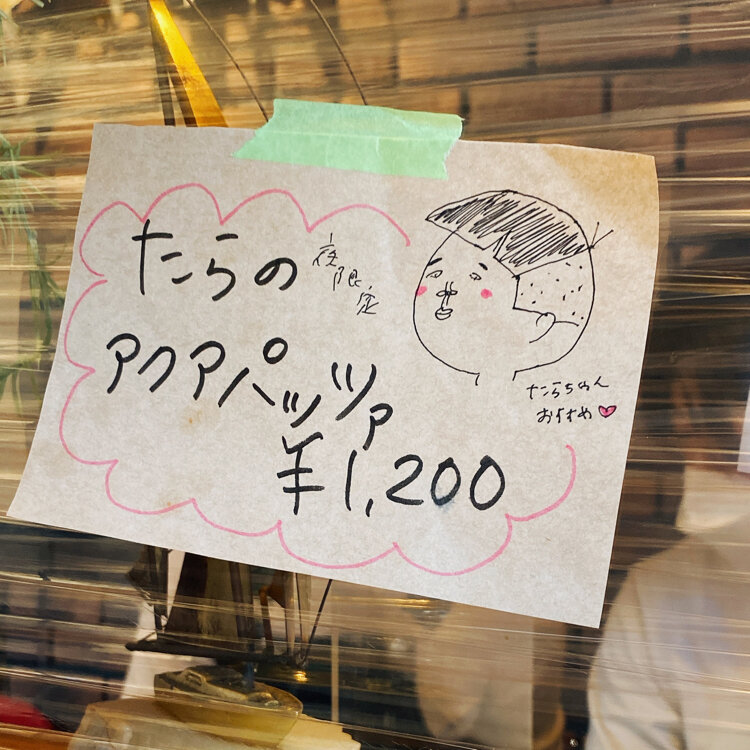 たらの
夜限定
アクアパッツァ
¥1,200
たらちゃん
おすすめ